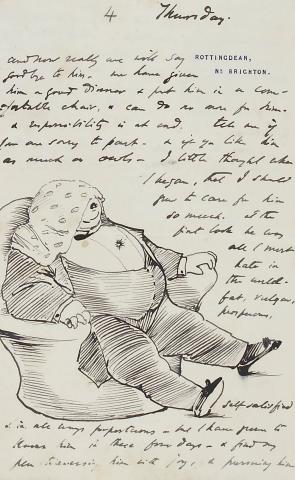 4 Thursday.
ROTTINGDEAN,
Nr. BRIGHTON.
and now really we will say
goodbye to him. we have given
him a good dinner & put him in a com-
fortable chair, & can do no more for him.
& responsibility is at end. tell me if
you are sorry to part. & if you like him
as much as ours - I little thought when
I began, that I should
grow to care for him
so much. at the
first look he was
all I most
hate in
the world -
fat, vulgar,
prosperous,
self satisfied
& in all ways preposterous - but I have grown to
him in these few days - & find my
pen him with joy, & pursuing him